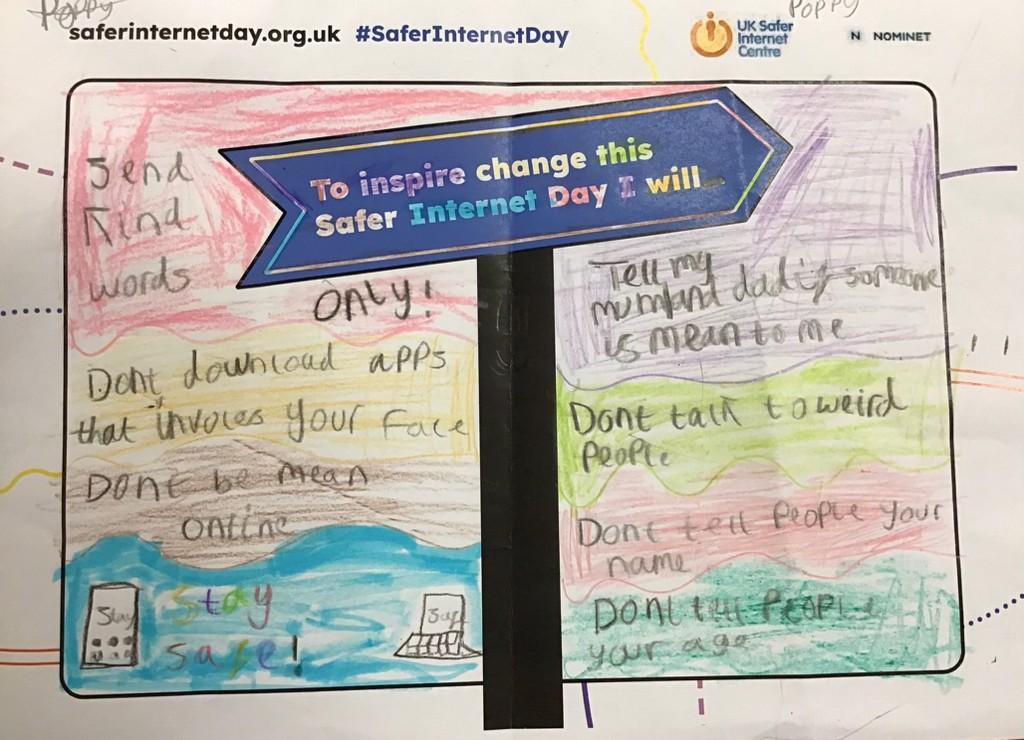 Poppy
POPPY
saferinternetday.org.uk #SaferInternetDay
UK Safer
Internet
Centre
N NOMINET
To inspire change this
Safer Internet Day I will...
Send
Kind
words
Only!
Dont download apps
that involes your face
Dont be mean
online
Stay
Stay
safe!
Safe
Tell my
mum and dad if someone
is mean to me
Dont talk to weird
People
Dont tell People your
name
DONt tell People
your age